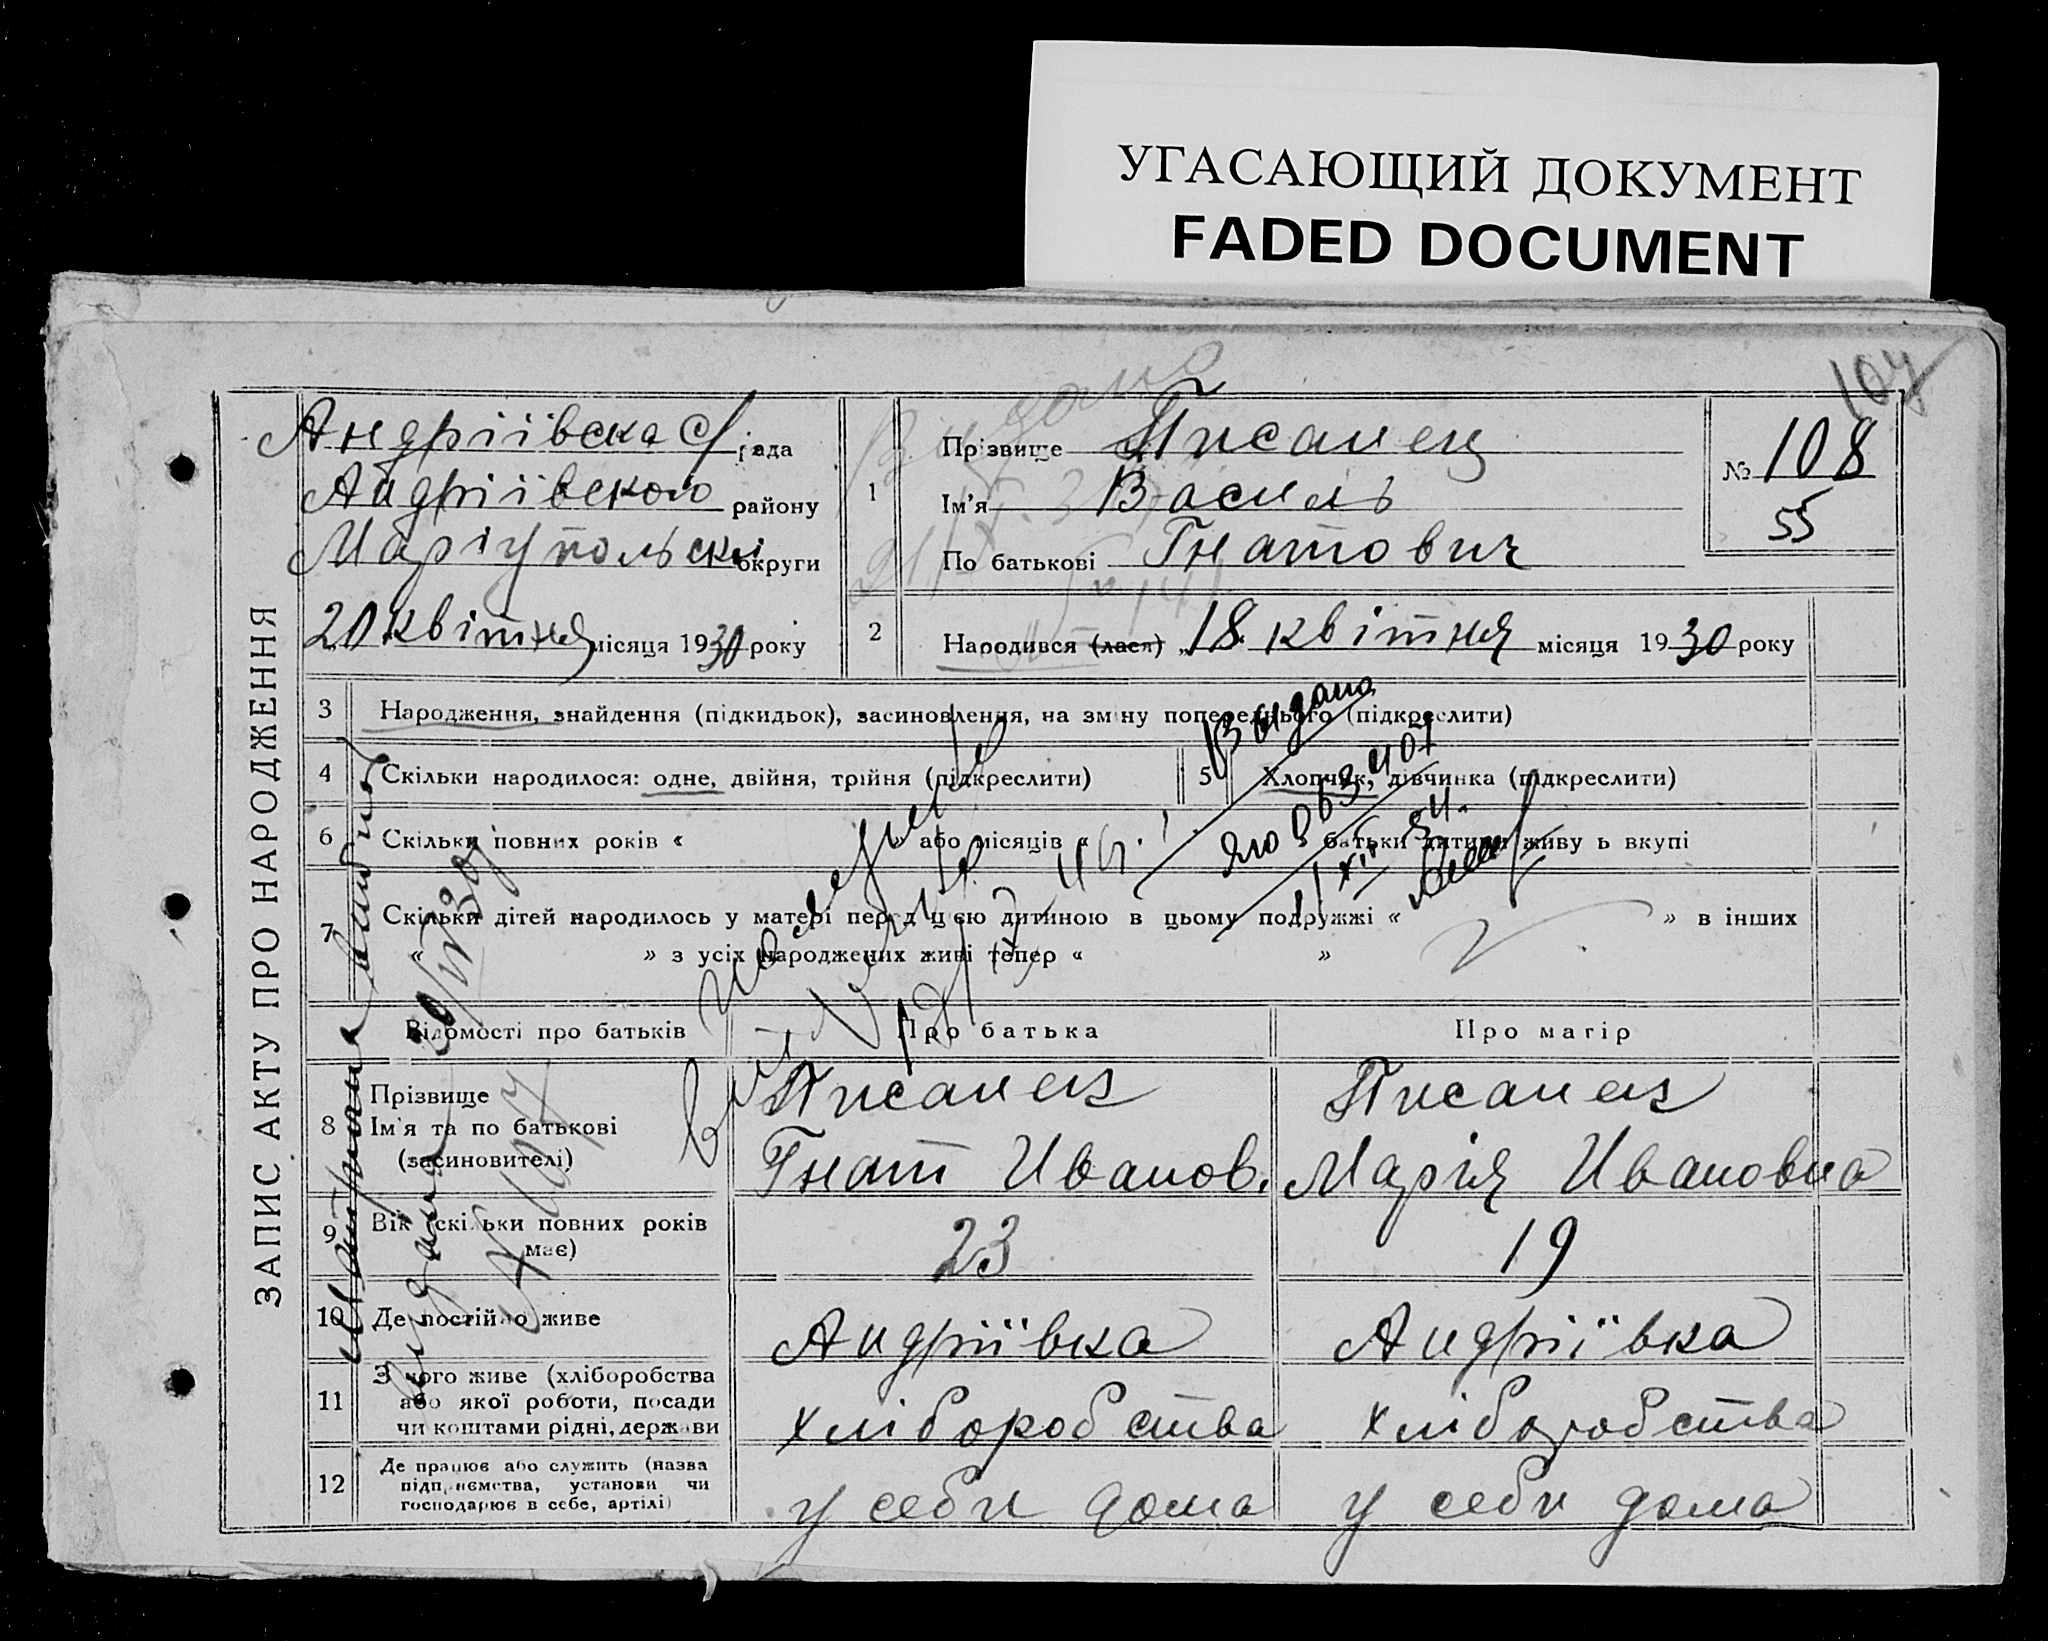 УГАСАЮЩИЙ ДОКУМЕНТ
FADED DOCUMENT
104
ЗАПИС АКТУ ПРО НАРОДЖЕННЯ
Андріївска с/рада
Андріївского району
Маріупольскі округи
20 квітня місяця 1930 року
1
Прізвище Писанец
Ім'я Василь
По батькові Гнатович
№ 108
55
2
Народився (лася) „18 квітня місяця 1930 року
3 Народження, знайдення (підкидьок), засиновлення, на зміну попереднього (підкреслити)
4 Скільки народилося: одне, двійня, трійня (підкреслити)
5 Хлопчик, дівчинка (підкреслити)
6 Скільки повних років « або місяців « батьки дитини живу ь вкупі
7 Скільки дітей народилось у матері перед цією дитиною в цьому подружжі « » в інших
« » з усіх народжених живі тепер « »
Видано
Відомості про батьків
Про батька
Про матір
8 Прізвище
Ім'я та по батькові
(засиновителі)
Писанец
Гнат Иванов.
Писанец
Марія Ивановна
9 Вік (скільки повних років
має)
23
19
10 Де постійно живе
Андріївка
Андріївка
11 З чого живе (хліборобства
або якої роботи, посади
чи коштами рідні, держави
хліборобства
хліборобства
12 Де працює або служить (назва
підприємства, установи чи
господарює в себе, артілі)
у себи дома
у себи дома